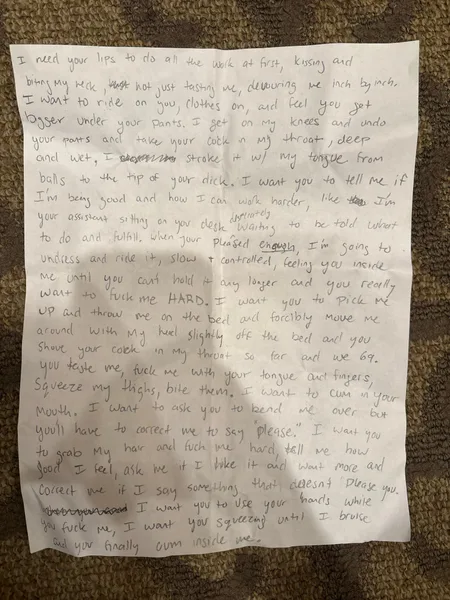 I need your lips to do all the work at first, kissing and
biting my neck, not just tasting me, devouring me inch by inch.
I want to ride on you, clothes on, and feel you get
bigger under your pants. I get on my knees and undo
your pants and take your cock in my throat, deep
and wet. I stroke it w/ my tongue from
balls to the tip of your dick. I want you to tell me if
I'm being good and how I can work harder, like I'm
your assistant sitting on you desk definitely waiting to be told what
to do and fulfill. When your pleased enough, I'm going to
undress and ride it, slow + controlled, feeling you inside
me until you can't hold it any longer and you really
want to fuck me HARD. I want you to pick me
up and throw me on the bed and forcibly move me
around with my head slightly off the bed and you
shove your cock in my throat so far and we 69.
you taste me, fuck me with your tongue and fingers,
squeeze my thighs, bite them. I want to cum in your
mouth. I want to ask you to bend me over but
you'll have to correct me to say "please." I want you
to grab my hair and fuck me hard, tell me how
good I feel, ask me if I like it and want more and
correct me if I say something that doesn't please you.
I want you to use your hands while
you fuck me, I want you squeezing until I bruise
and you finally cum inside me.